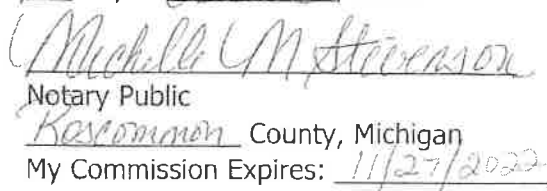 Michelle M Stevenson
Notary Public
Roscommon County, Michigan
My Commission Expires: 11/27/2022